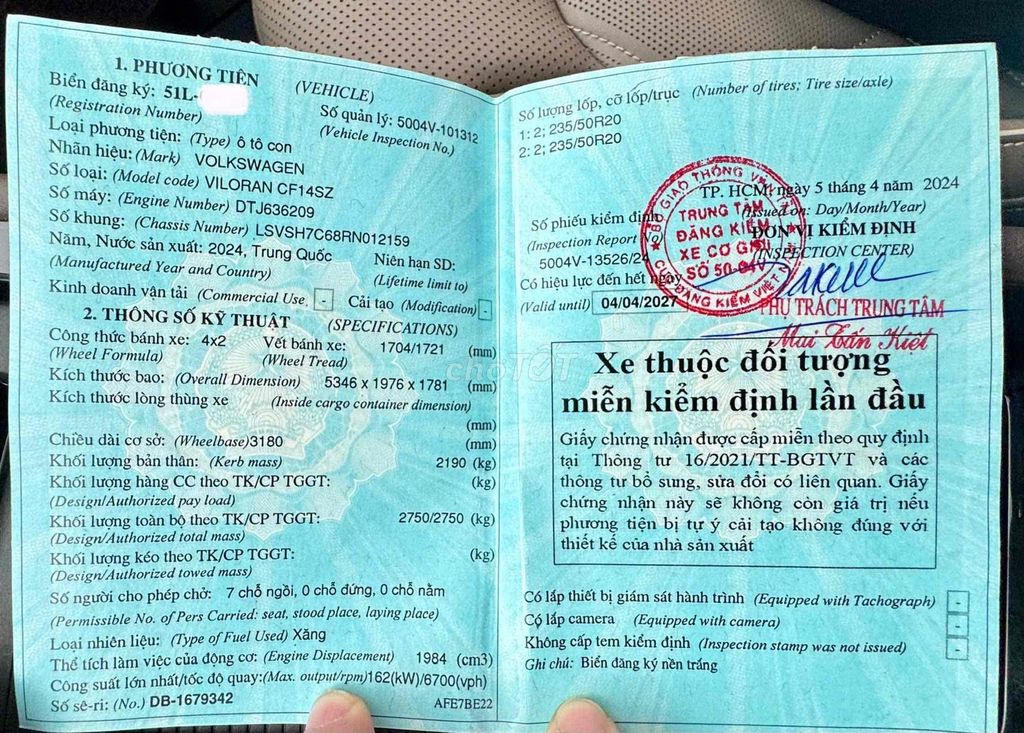 1. PHƯƠNG TIỆN (VEHICLE)
Biển đăng ký: 51L-
(Registration Number)
Số quản lý: 5004V-101312
(Vehicle Inspection No.)
Loại phương tiện: (Type) ô tô con
Nhãn hiệu: (Mark) VOLKSWAGEN
Số loại: (Model code) VILORAN CF14SZ
Số máy: (Engine Number) DTJ636209
Số khung: (Chassis Number) LSVSH7C68RN012159
Năm, Nước sản xuất: 2024, Trung Quốc
(Manufactured Year and Country)
Niên hạn SD:
(Lifetime limit to)
Kinh doanh vận tải (Commercial Use) - Cải tạo (Modification) -
2. THÔNG SỐ KỸ THUẬT (SPECIFICATIONS)
Công thức bánh xe: 4x2 Vết bánh xe: 1704/1721 (mm)
(Wheel Formula) (Wheel Tread)
Kích thước bao: (Overall Dimension) 5346 x 1976 x 1781 (mm)
Kích thước lòng thùng xe (Inside cargo container dimension)
(mm)
Chiều dài cơ sở: (Wheelbase)3180 (mm)
Khối lượng bản thân: (Kerb mass) 2190 (kg)
Khối lượng hàng CC theo TK/CP TGGT: (kg)
(Design/Authorized pay load)
Khối lượng toàn bộ theo TK/CP TGGT: 2750/2750 (kg)
(Design/Authorized total mass)
Khối lượng kéo theo TK/CP TGGT: (kg)
(Design/Authorized towed mass)
Số người cho phép chở: 7 chỗ ngồi, 0 chỗ đứng, 0 chỗ nằm
(Permissible No. of Pers Carried: seat, stood place, laying place)
Loại nhiên liệu: (Type of Fuel Used) Xăng
Thể tích làm việc của động cơ: (Engine Displacement) 1984 (cm3)
Công suất lớn nhất/tốc độ quay:(Max. output/rpm)162(kW)/6700(vph)
Số sê-ri: (No.) DB-1679342 AFE7BE22
Số lượng lốp, cỡ lốp/trục (Number of tires; Tire size/axle)
1: 2; 235/50R20
2: 2; 235/50R20
TP. HCM, ngày 5 tháng 4 năm 2024
(Issued on: Day/Month/Year)
Số phiếu kiểm định
(Inspection Report
5004V-13526/24
ĐƠN VỊ KIỂM ĐỊNH
(INSPECTION CENTER)
BỘ GIAO THÔNG VẬN TẢI
TRUNG TÂM
ĐĂNG KIỂM
XE CƠ GIỚI
SỐ 50-04V
CỤC ĐĂNG KIỂM VIỆT NAM
Có hiệu lực đến hết ngày
(Valid until) 04/04/2027
PHỤ TRÁCH TRUNG TÂM
Mai Tấn Kiệt
Xe thuộc đối tượng
miễn kiểm định lần đầu
Giấy chứng nhận được cấp miễn theo quy định
tại Thông tư 16/2021/TT-BGTVT và các
thông tư bổ sung, sửa đổi có liên quan. Giấy
chứng nhận này sẽ không còn giá trị nếu
phương tiện bị tự ý cải tạo không đúng với
thiết kế của nhà sản xuất
Có lắp thiết bị giám sát hành trình (Equipped with Tachograph) -
Có lắp camera (Equipped with camera) -
Không cấp tem kiểm định (Inspection stamp was not issued) -
Ghi chú: Biển đăng ký nền trắng
chợTỐT